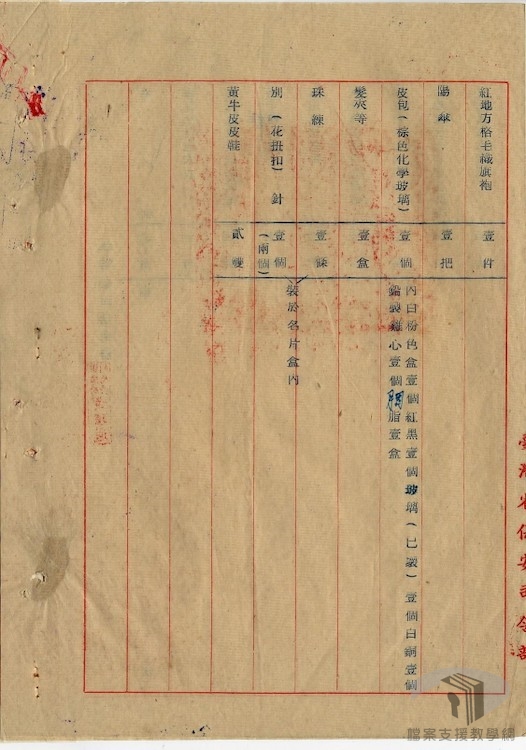 臺灣省保安司令部
紅地方格毛織旗袍 壹件
陽傘 壹把
皮包（棕色化學玻璃） 壹個 內白粉色盒壹個紅黑壹個玻璃（已破）壹個白銅壹個
鷄心壹個胭脂壹盒
髮夾等 壹盒
珠練 壹條
別（花扭扣）針 壹個（兩個） 裝於名片盒內
黃牛皮皮鞋 貳雙
檔案支援教學網